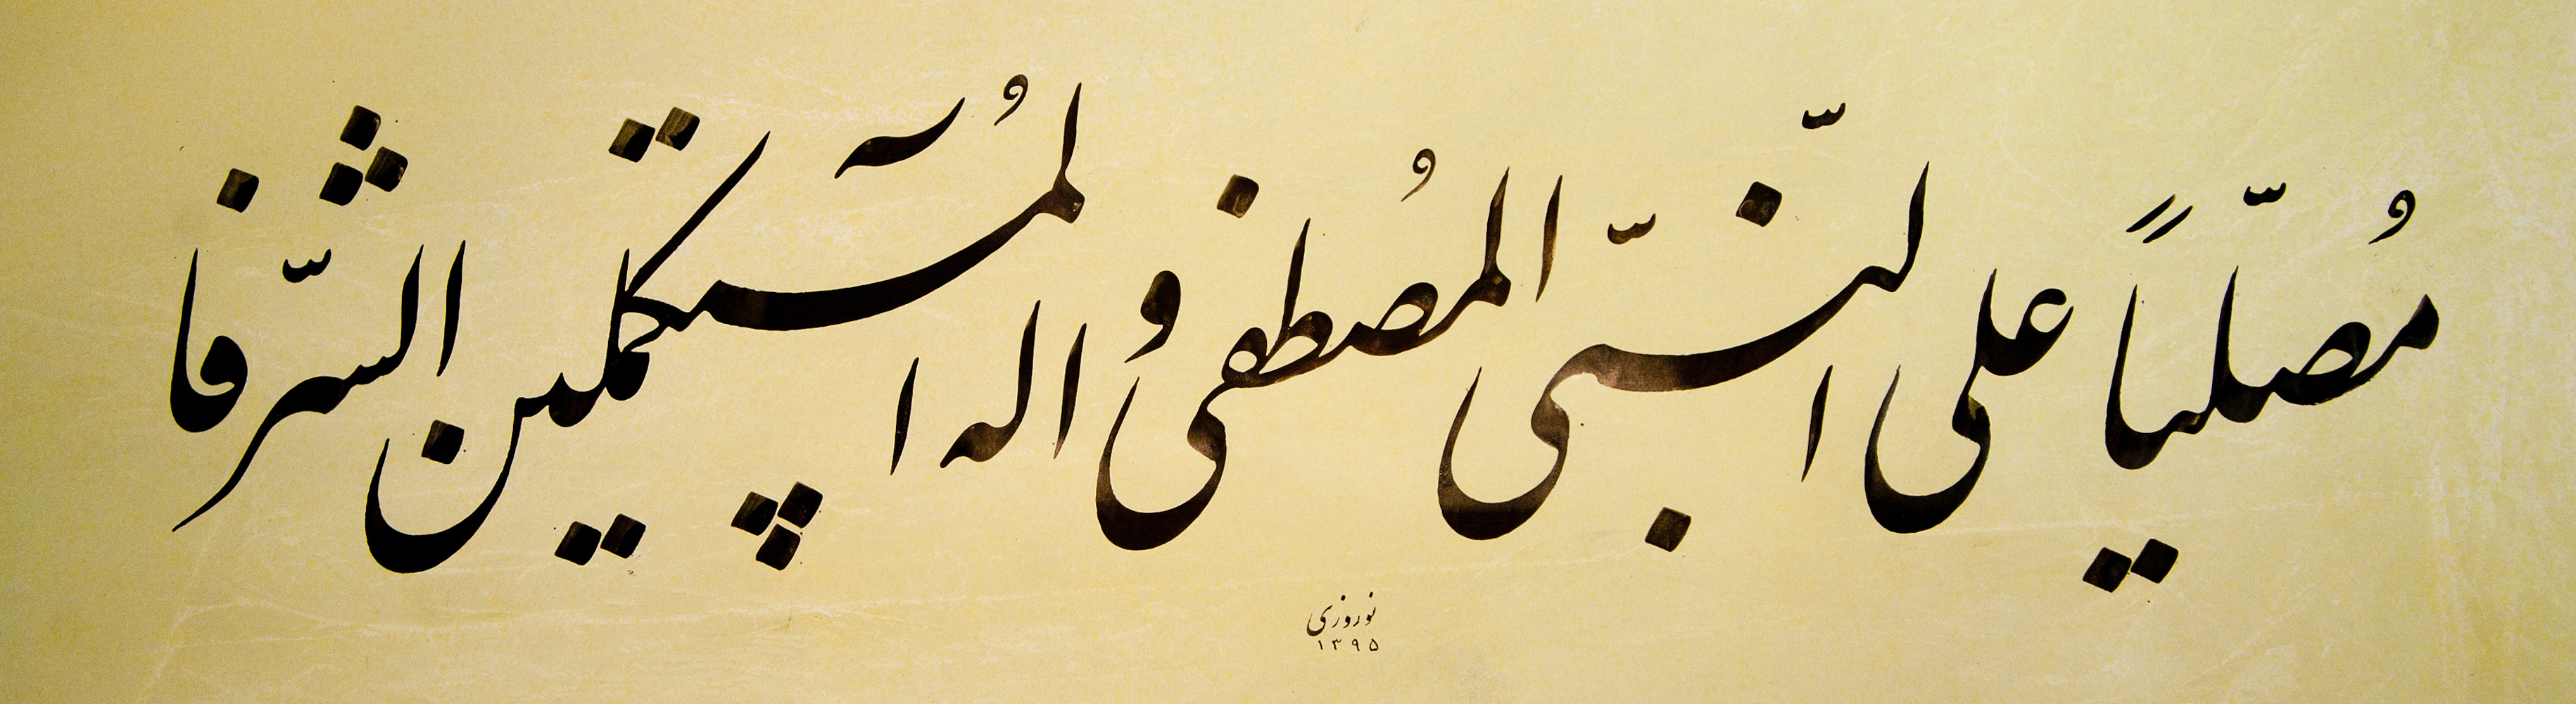 مُصلّیاً علی النّبیّ المُصطفی و اله المُستکملین الشّرفا
نوروزی
۱۳۹۵